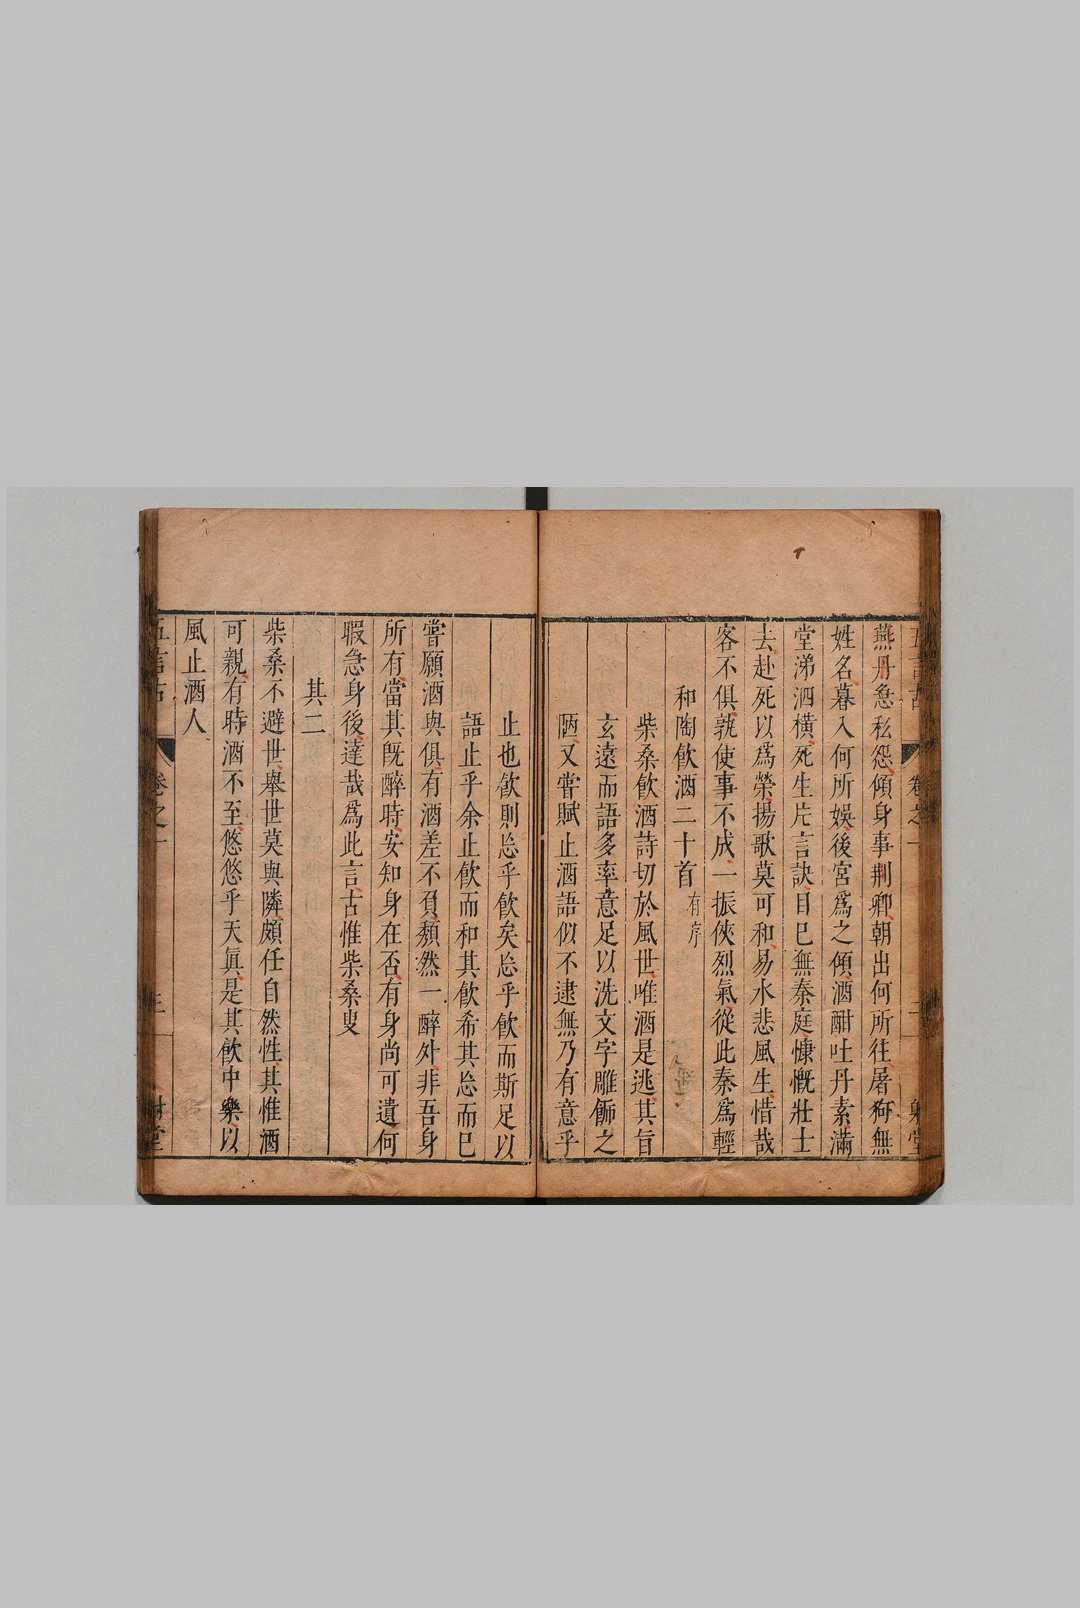 燕丹急私怨傾身事荆卿朝出何所往屠狗無
姓名暮入何所娛後宮爲之傾酒酣吐丹素滿
堂涕泗橫死生片言訣目已無秦庭慷慨壯士
去赴死以爲榮揚歌莫可和易水悲風生惜哉
客不俱孰使事不成一振俠烈氣從此秦爲輕
和陶飲酒二十首 有序
柴桑飲酒詩切於風世唯酒是逃其旨
玄遠而語多率意足以洗文字雕餙之
陋又嘗賦止酒語似不逮無乃有意乎
止也飲則忘乎飲矣忘乎飲而斯足以
語止乎余止飲而和其飲希其忘而已
嘗願酒與俱有酒差不負頽然一醉外非吾身
所有當其旣醉時安知身在否有身尚可遺何
暇急身後達哉爲此言古惟柴桑叟
其二
柴桑不避世舉世莫與隣頗任自然性其惟酒
可親有時酒不至悠悠乎天眞是其飲中樂以
風止酒人
五言古 卷之一 三